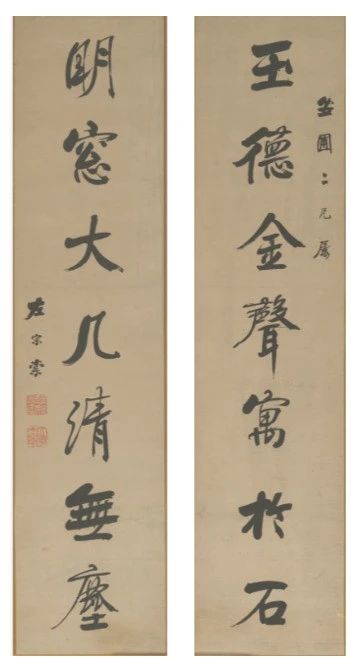 圃二兄屬
玉德金聲寓於石
明窻大几清無塵
左宗棠